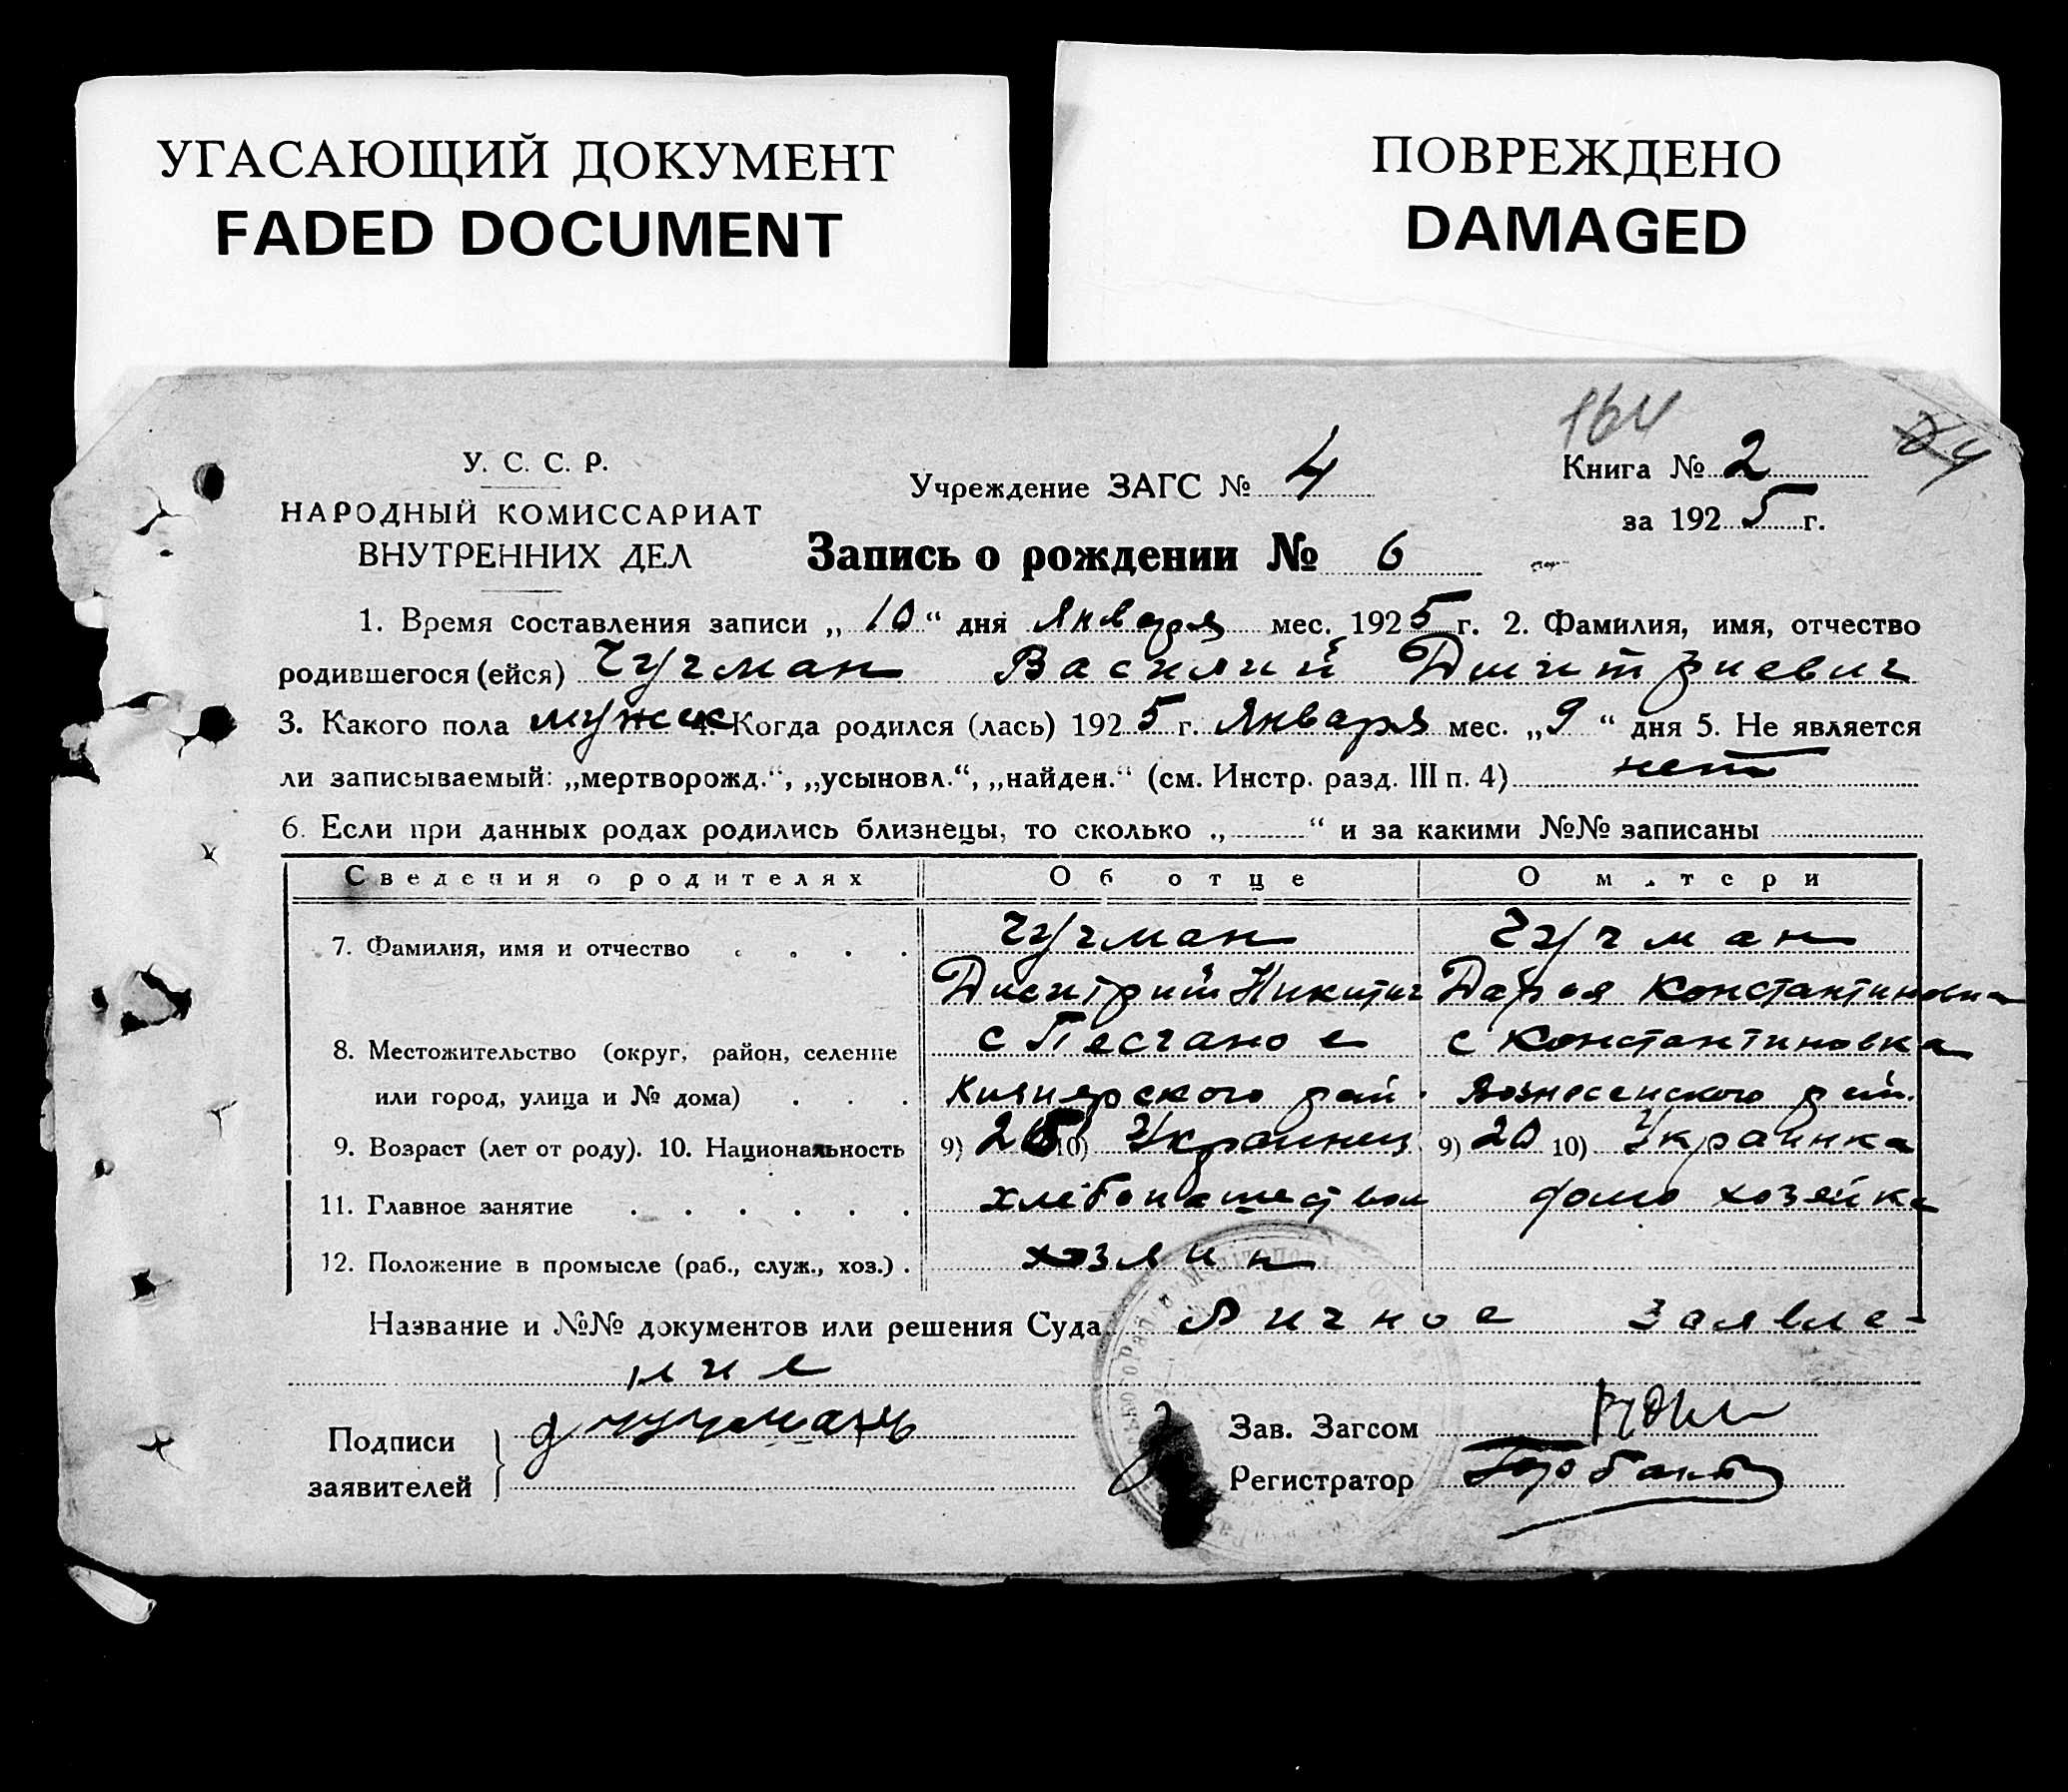 УГАСАЮЩИЙ ДОКУМЕНТ
FADED DOCUMENT
ПОВРЕЖДЕНО
DAMAGED
164
У. С. С. Р.
НАРОДНЫЙ КОМИССАРИАТ
ВНУТРЕННИХ ДЕЛ
Учреждение ЗАГС № 4
Книга № 2
за 1925 г.
Запись о рождении № 6
1. Время составления записи „10“ дня Января мес. 1925 г. 2. Фамилия, имя, отчество
родившегося (ейся) Чучман Василий Дмитриевич
3. Какого пола мужск 4. Когда родился (лась) 1925 г. Января мес. „9“ дня 5. Не является
ли записываемый: „мертворожд.“, „усыновл.“, „найден.“ (см. Инстр. разд. III п. 4) нет
6. Если при данных родах родились близнецы, то сколько „ “ и за какими №№ записаны
Сведения о родителях Об отце О матери
7. Фамилия, имя и отчество Чучман Чучман
Дмитрий Никитич Дарья Константиновна
8. Местожительство (округ, район, селение с Песчаное с Константиновка
или город, улица и № дома) рай. Вознесенского рай.
9. Возраст (лет от роду). 10. Национальность 9) 10) Украинец 9) 20 10) Украинка
11. Главное занятие хлебопашеством домохозяйка
12. Положение в промысле (раб., служ., хоз.) хозяин
Название и №№ документов или решения Суда Личное заявле-
ние
Подписи
заявителей
Д Чучмань
Зав. Загсом
Регистратор